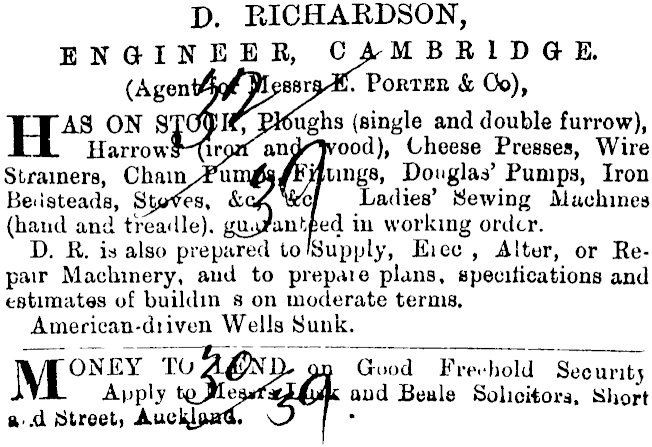 D. RICHARDSON,
ENGINEER, CAMBRIDGE.
(Agent for Messrs E. PORTER & Co),
HAS ON STOCK, Ploughs (single and double furrow),
Harrows (iron and wood), Cheese Presses, Wire
Strainers, Chain Pumps, Fittings, Douglas' Pumps, Iron
Bedsteads, Stoves, &c &c Ladies' Sewing Machines
(hand and treadle). guaranteed in working order.
D. R. is also prepared to Supply, Erec , Alter, or Re-
pair Machinery, and to prepare plans, specifications and
estimates of buildin s on moderate terms.
American-driven Wells Sunk.
MONEY TO LEND on Good Freehold Security
Apply to Messrs and Beale Solicitors, Short
a d Street, Auckland.
32
39
30
39